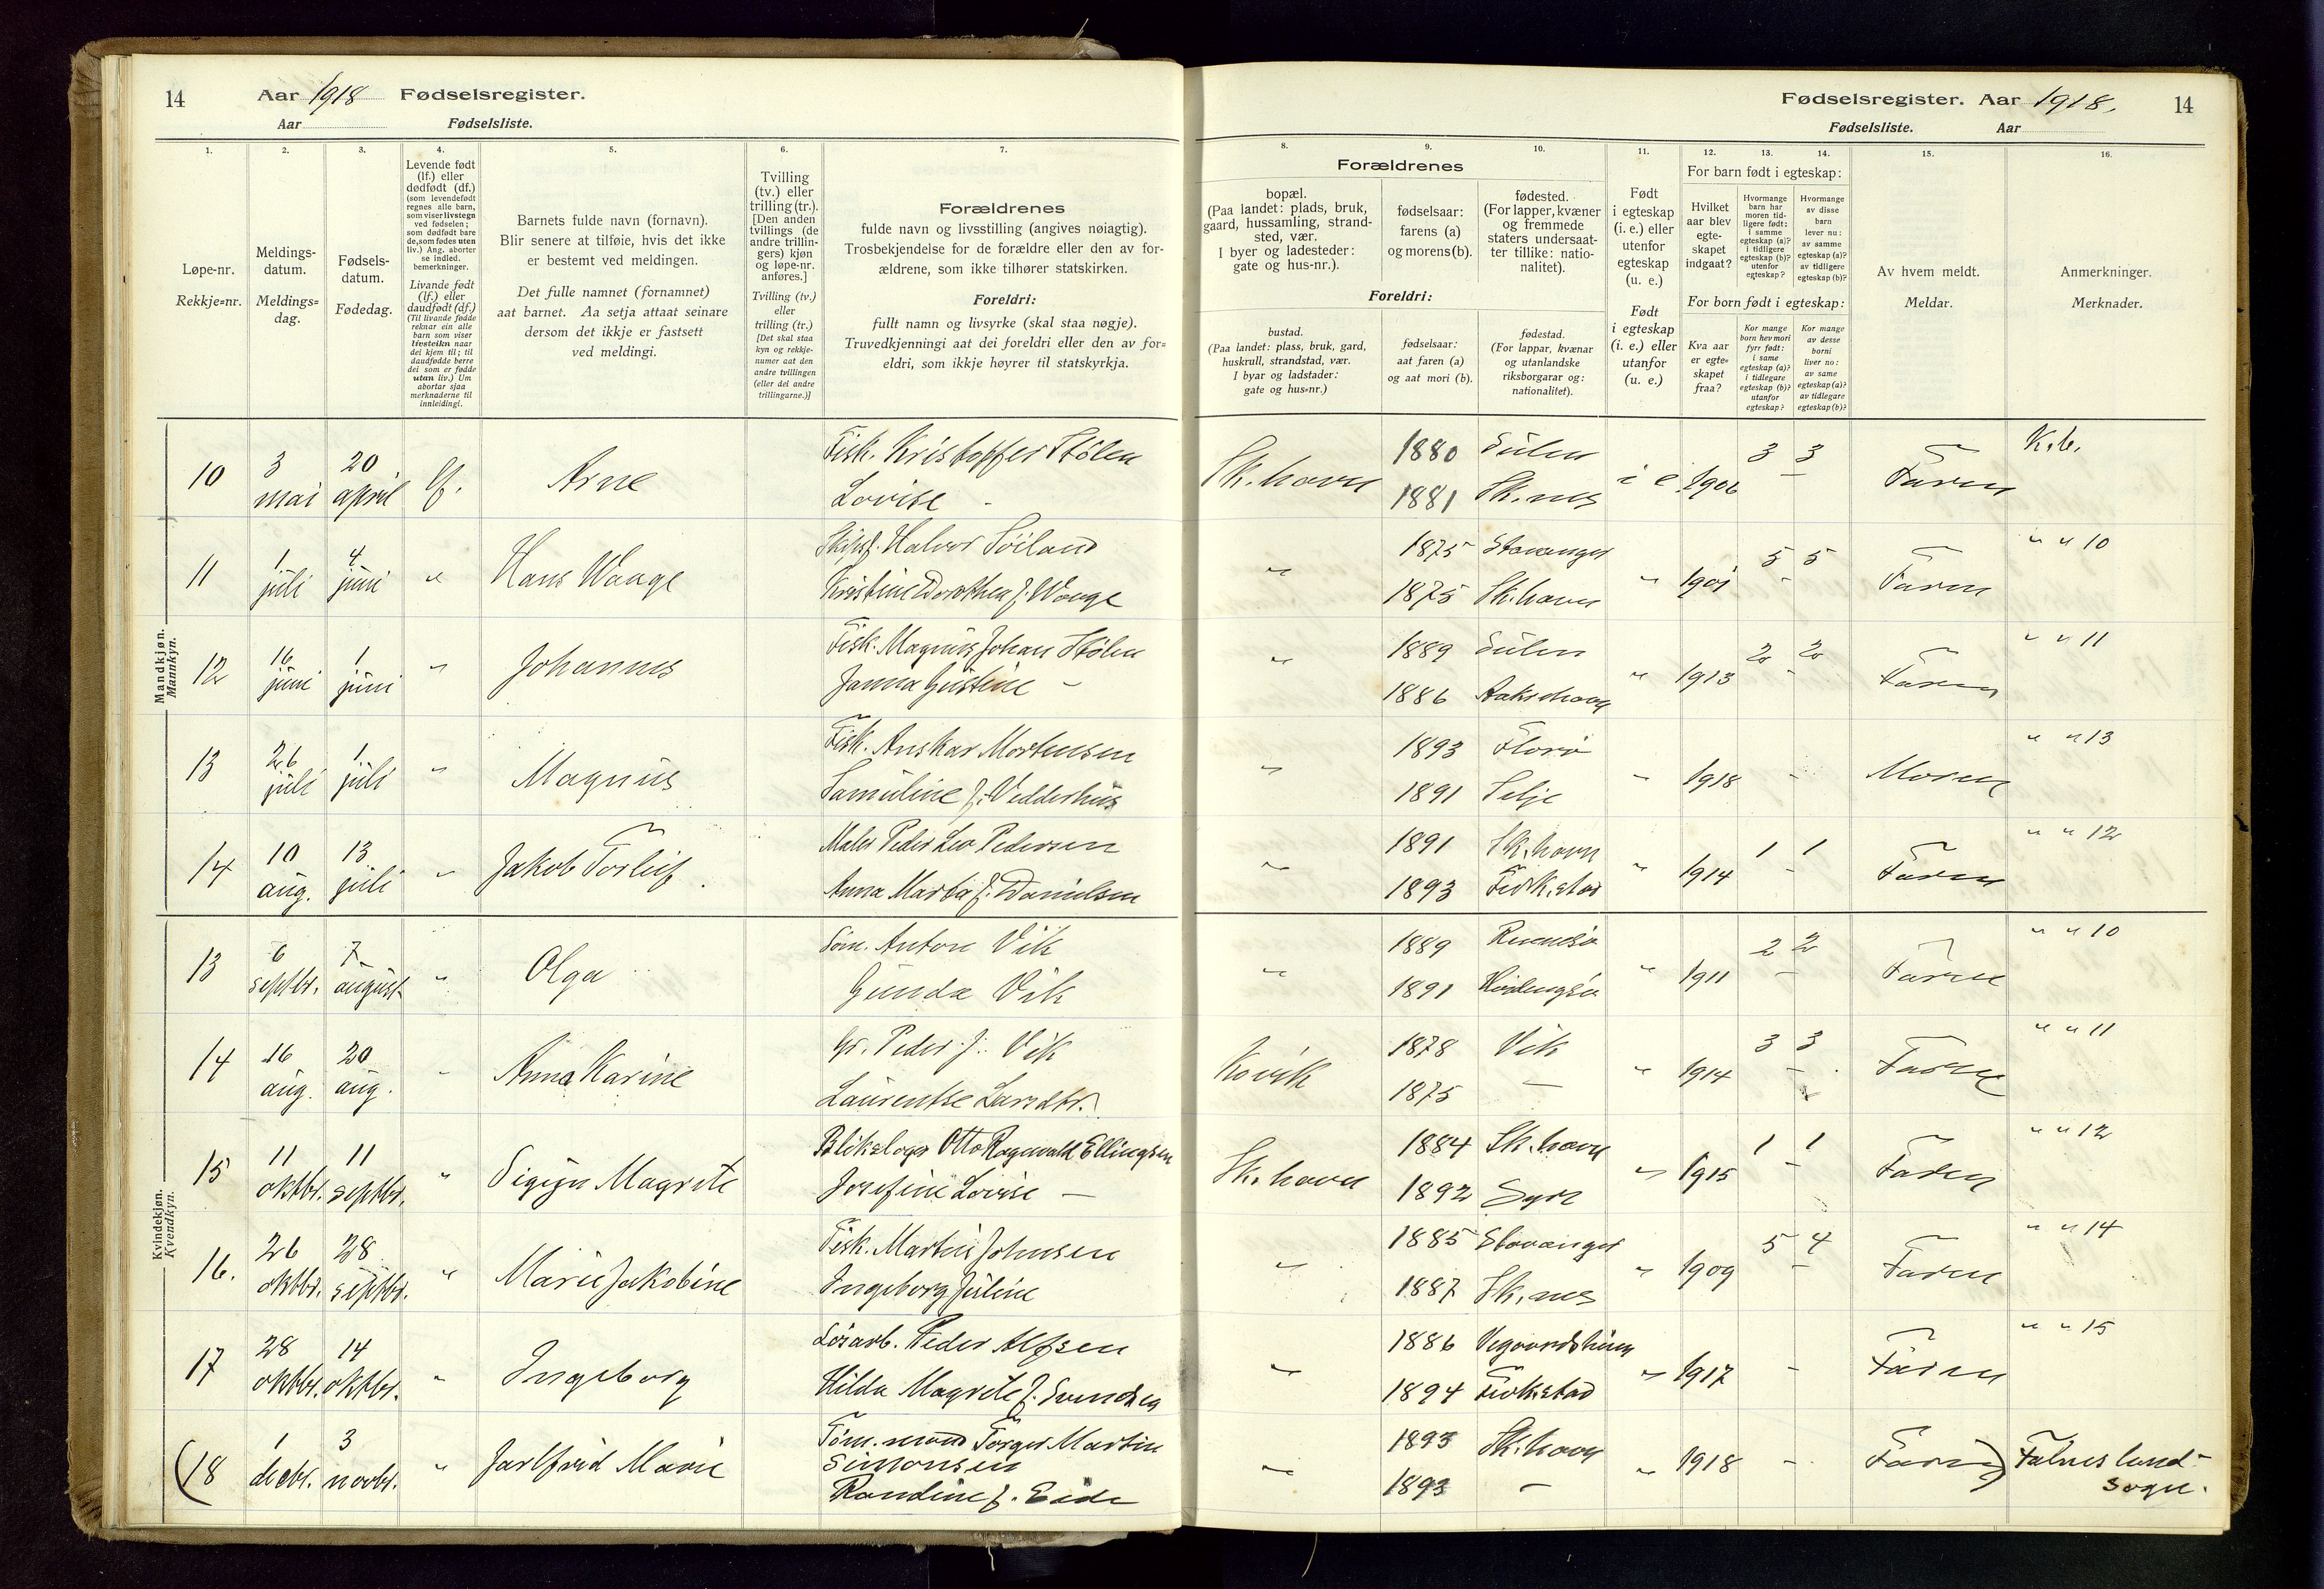 14 Aar 1918 Fødselsregister.
Aar Fødselsliste.
Fødselsregister. Aar 1918. 14
Fødselsliste. Aar
1. 2. 3. 4. 5. 6. 7.
Løpe-nr.
Rekkje=nr.
Meldings-
datum.
Meldings=
dag.
Fødsels-
datum.
Fødedag.
Levende født
(lf.) eller
dødfødt (df.)
(som levendefødt
regnes alle barn,
som viser livstegn
ved fødselen;
som dødfødt bare
de, som fødes uten
liv.) Ang. aborter
se indled.
bemerkninger.
Livande født
(lf.) eller
daudfødt (df.)
(Til livande fødde
reknar ein alle
barn som viser
livsteikn naar
dei kjem til; til
daudfødde berre
dei som er fødde
utan liv.) Um
abortar sjaa
merknaderne til
innleidingi.
Barnets fulde navn (fornavn).
Blir senere at tilføie, hvis det ikke
er bestemt ved meldingen.
Det fulle namnet (fornamnet)
aat barnet. Aa setja attaat seinare
dersom det ikkje er fastsett
ved meldingi.
Tvilling
(tv.) eller
trilling (tr.).
[Den anden
tvillings (de
andre trillin-
gers) kjøn
og løpe-nr.
anføres.]
Tvilling (tv.)
eller
trilling (tr.)
[Det skal staa
kyn og rekkje-
numer aat den
andre tvillingen
(eller dei andre
trillingarne.)]
Forældrenes
fulde navn og livsstilling (angives nøiagtig).
Trosbekjendelse for de forældre eller den av for-
ældrene, som ikke tilhører statskirken.
Foreldri:
fullt namn og livsyrke (skal staa nøgje).
Truvedkjenningi aat dei foreldri eller den av for=
eldri, som ikkje høyrer til statskyrkja.
8. 9. 10. 11. 12. 13. 14. 15. 16.
Forældrenes
bopæl.
(Paa landet: plads, bruk,
gaard, hussamling, strand-
sted, vær.
I byer og ladesteder:
gate og hus-nr.).
fødselsaar:
farens (a)
og morens (b).
fødested.
(For lapper, kvæner
og fremmede
staters undersaat-
ter tillike: natio-
nalitet).
Foreldri:
bustad.
(Paa landet: plass, bruk, gard,
huskrull, strandstad, vær.
I byar og ladstader:
gate og hus=nr.)
fødselsaar:
aat faren (a)
og aat mori (b).
fødestad.
(For lappar, kvænar
og utanlandske
riksborgarar og:
nationalitet).
Født
i egteskap
(i. e.) eller
utenfor
egteskap
(u. e.)
Født
i egteskap
(i. e.) eller
utanfor
(u. e.)
For barn født i egteskap:
Hvilket
aar blev
egte-
skapet
indgaat?
Hvormange
barn har
moren tid-
ligere født:
i samme
egteskap (a)?
i tidligere
egteskap (b)?
utenfor
egteskap?
Hvormange
av disse
barn
lever nu:
av samme
egteskap (a)?
av tidligere
egteskap (b)?
For born født i egteskap:
Kva aar
er egte=
skapet
fraa?
Kor mange
born hev mori
fyrr født:
i same
egteskap (a)?
i tidlegare
egteskap (b)?
utanfor
egteskap?
Kor mange
av desse
borni
liver no:
av same
egteskap (a)?
av tidlegare
egteskap (b)?
Av hvem meldt.
Meldar.
Anmerkninger.
Merknader.
Mandkjøn.
Mannkyn.
10 3 mai 20 april lf. Arne
Fisk. Kristoffer Stølen
Lovise -
Sk.havn 1880 Sulen i e. 1906 3 3 Faren K.b.
1881 Sk.nes
11 1 juli 4 juni " Hans Waage
Halvor Søiland
Kristine Dorothea f. Waage
" 1875 Stavanger " 1901 5 5 Faren " " 10
1875 Sk.havn
12 16 juni 1 juni " Johannes
Fisk. Magnus Johan Stølen
Janna Gustine -
" 1889 Sulen " 1913 2 2 Faren " " 11
1886 Aakrehavn
13 26 juli 1 juli " Magnus
Fisk. Anskar Mortensen
Samuline f. Vedderhus
" 1893 Florø " 1918 - Moren " " 13
1891 Selje
14 10 aug. 13 juli " Jakob Torleif
Maler Peder Leo Pedersen
Anna Marta f. Danielsen
" 1891 Sk.havn " 1914 1 1 Faren " " 12
1893 Ferkestad
Kvindekjøn.
Kvendkyn.
13 6 septbr. 7 august " Olga
Tøm. Anton Vik
Gunda Vik
" 1889 " 1911 2 2 Faren " " 10
1891
14 16 aug. 20 aug. " Anna Karine
Gr. Peder J. Vik
Laurentse Larsdtr.
1878 Vik " 1914 3 3 Faren " " 11
1875 -
15 11 oktbr. 11 septbr. " Sigyn Magrete
Blikslager Otto Ragnvald Ellingsen
Josefine Lovise -
Sk.havn 1884 Sk.havn " 1915 1 1 Faren " " 12
1892 Syre
16. 26 oktbr. 28 septbr. " Marie Jakobine
Fisk. Martin Johnsen
Ingeborg Juline
" 1885 Stavanger " 1909 5 4 Faren " " 14
1887 Sk.nes
17 28 oktbr. 14 oktbr. " Ingeborg
Løsarb. Peder Alfsen
Hilda Magrete f. Svendsen
" 1886 Vegaardsheien " 1917 - Faren " " 15
1894 Ferkestad
(18 1 decbr. 3 novbr. " Jarlfrid Marie
Tøm.mand Torger Martin
Simonsen
Randine f. Eide
" 1893 Sk.havn " 1918 - Faren) Falnes lund-
1893 - sogn.